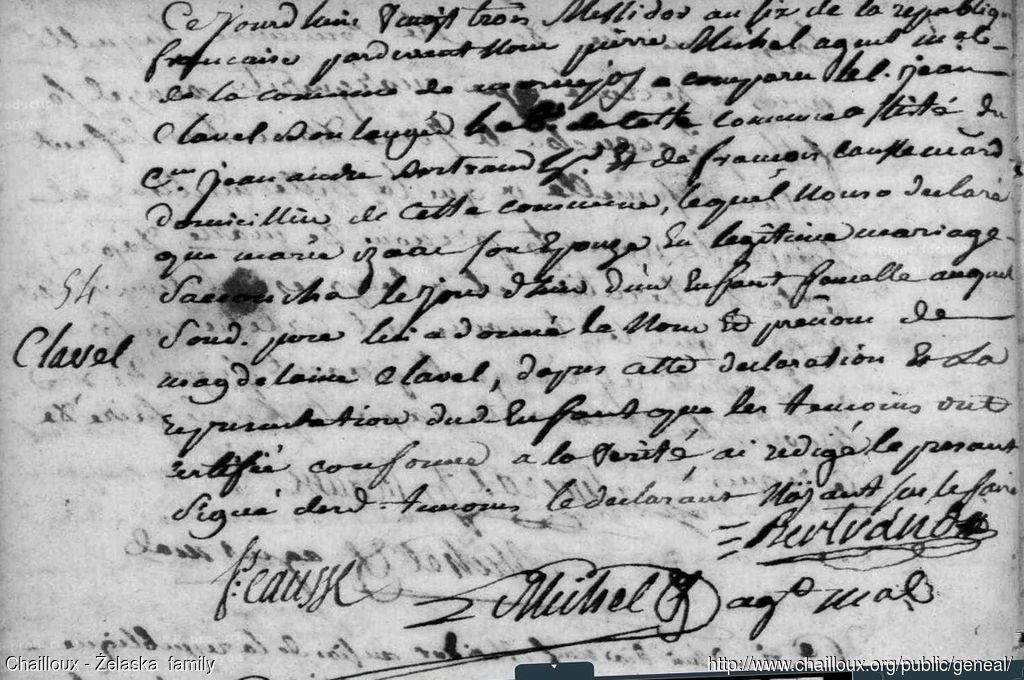 Ce jourdhui vingt trois Messidor an six de la republique
francaise pardevant Nous pierre Michel agent mal
de la commune de marvejols a comparu le C. jean
Clavel boulanger habt de cette commune assisté du
Cen jean andre Bertrand et de francois causse
domicilliés de cette commune, lequel Nous a declaré
que marie izaac son Epouze En legitime mariage
accoucha le jour dhier d'un Enfant femelle auquel
Sond. pere lui a donné le Nom Et prenom de
magdelaine Clavel, depres cette declaration Et la
representation dud Enfant que les temoins ont
certifié conforme a la verité ai redigé le present
Signé desd. temoins le declarant N'ayant sçu le faire
54.
Clavel
Bertrand
f. causse
Michel agt mal
Chailloux - Żelaska family
http://www.chailloux.org/public/geneal/